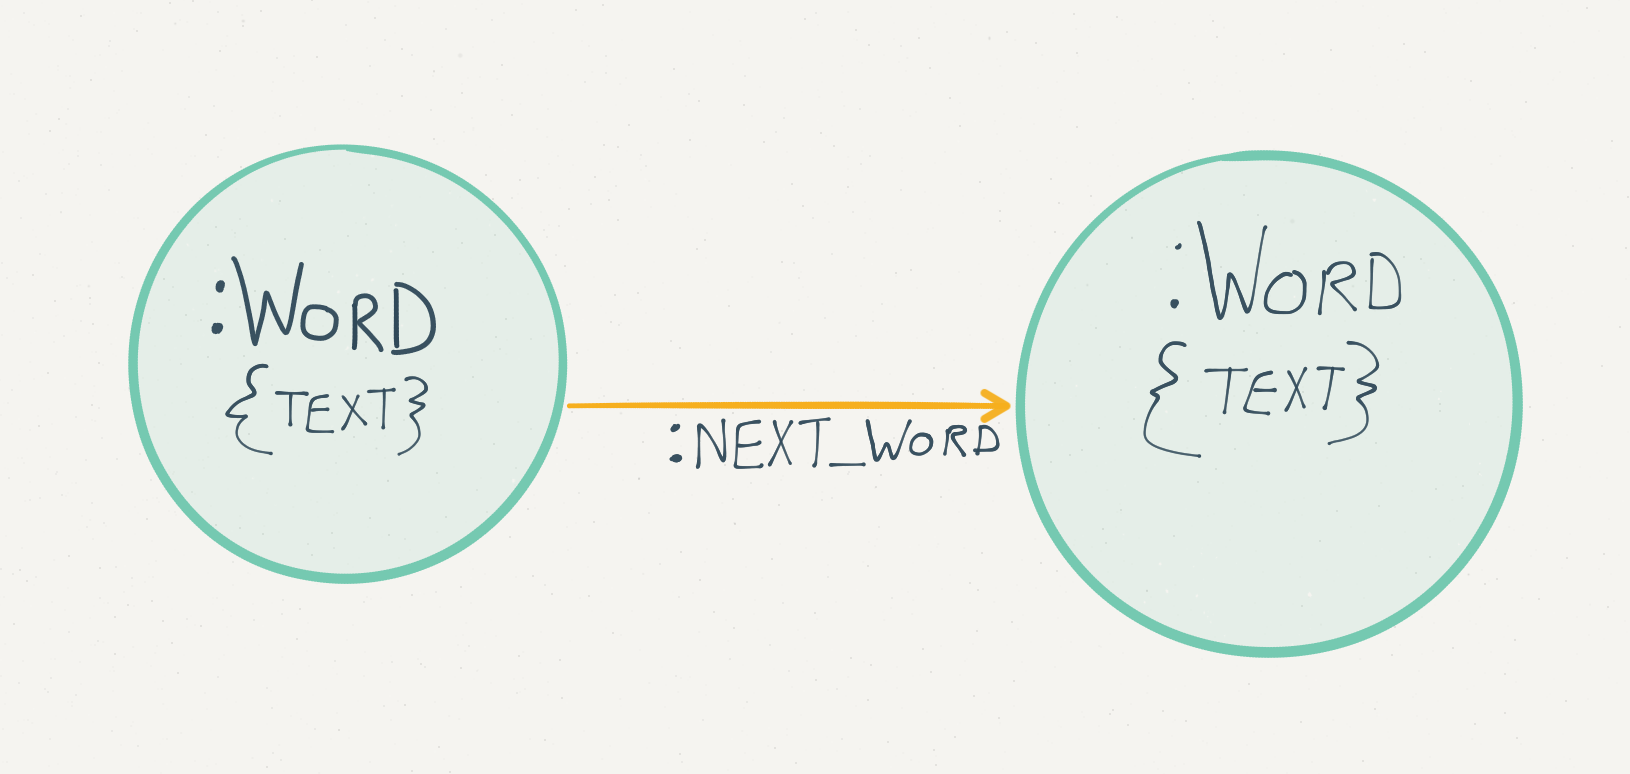 :WORD
{TEXT}
:NEXT_WORD
:WORD
{TEXT}